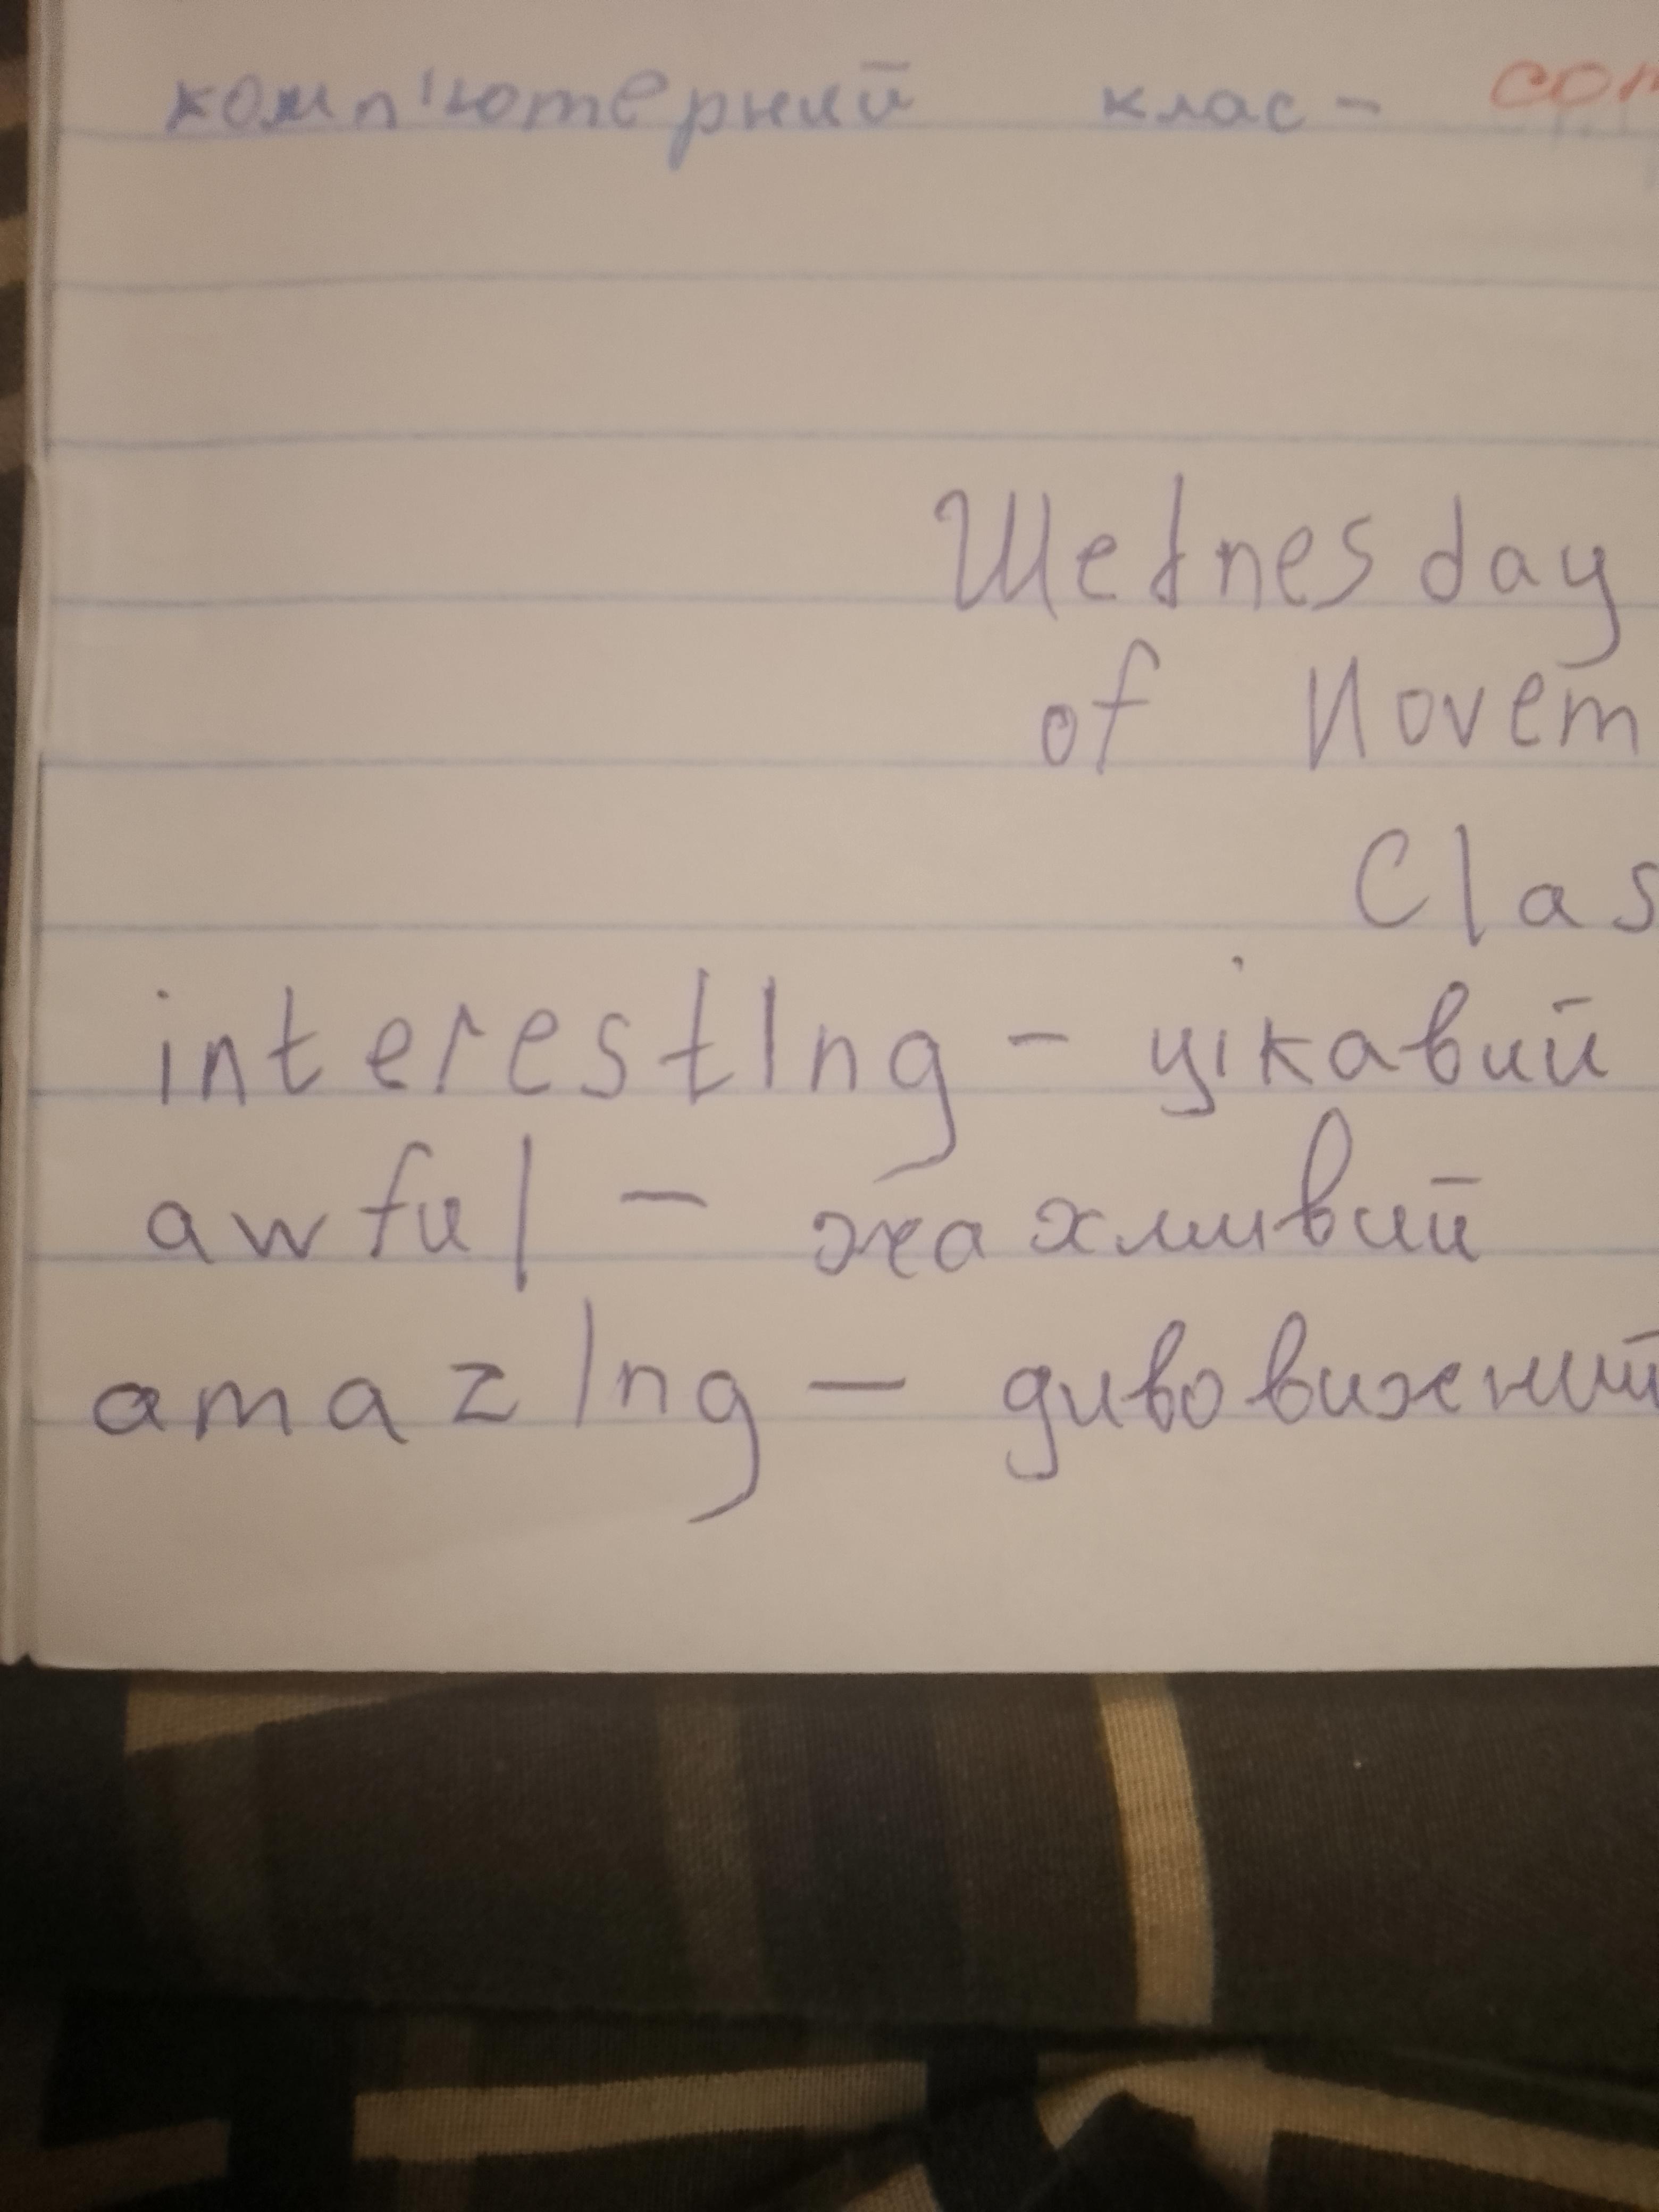 комп'ютерний клас - com
Wednesday
of Novem
Clas
interesting - цікавий
awful - жахливий
amazing - дивовижний